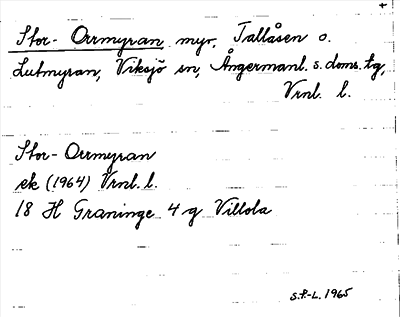 +
Stor-Orrmyran, myr, Tallåsen o.
Lutmyran, Viksjö sn, Ångermanl. s. doms. tg,
Vrnl. l.
Stor-Orrmyran
ek (1964) Vrnl. l.
18 H Graninge 4 g Villola
S.F.-L. 1965